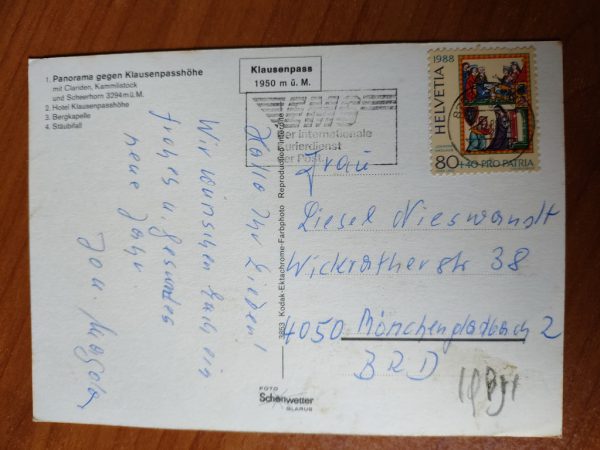 1. Panorama gegen Klausenpasshöhe
mit Clariden, Kammlistock
und Scheerhorn 3294 m ü. M.
2. Hotel Klausenpasshöhe
3. Bergkapelle
4. Stäubifall
Klausenpass
1950 m ü. M.
EMS
der internationale
Kurierdienst
der Post
HELVETIA
1988
80+40 PRO PATRIA
Hallo Ihr Lieben!
Wir wünschen Euch ein
frohes u. gesundes
neue Jahr
Jo u. Magda
3953 Kodak-Ektachrome-Farbphoto Reproduction interdite
Frau
Liesel Nieswandt
Wickratherstr 38
4050 Mönchengladbach 2
BRD
FOTO
Schönwetter
GLARUS